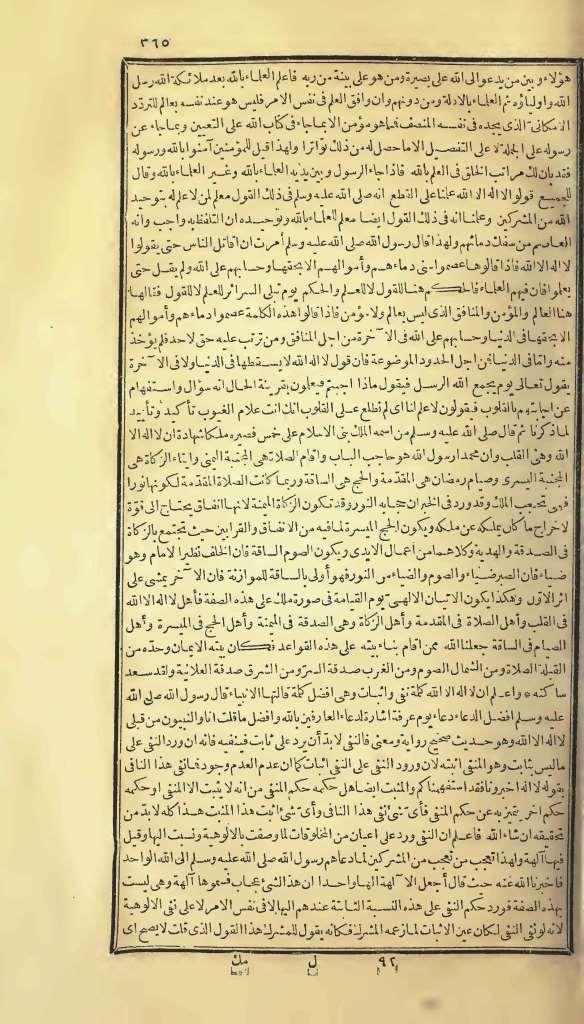 ٣٦٥
هؤلاء وبين من يدعو الى الله على بصيرة ومن هو على بينة من ربه فاعلم العلماء بالله بعد ملائكة الله رسل
الله وأولياؤه ثم العلماء بالادلة ومن دونهم وان وافق العلم فى نفس الامر فليس هو عند نفسه بعالم للتردد
الامكانى الذى يجده فى نفسه المنصف فما هو مؤمن الا بما جاء فى كتاب الله على التعيين وبما جاء عن
رسوله على الجملة لا على التفصيل الا ما حصل له من ذلك تواترا ولهذا قيل للمؤمنين آمنوا بالله ورسوله
فقد بان لك مراتب الخلق فى العلم بالله فاذا جاء الرسول وبين يديه العلماء بالله وغير العلماء بالله وقال
للجميع قولوا لا اله الا الله علمنا على القطع انه صلى الله عليه وسلم فى ذلك القول معلم لمن لا علم له بتوحيد
الله من المشركين وعلمنا انه فى ذلك القول ايضا معلم للعلماء بالله وتوحيده ان التلفظ به واجب وانه
العاصم من سفك دمائهم ولهذا قال رسول الله صلى الله عليه وسلم أمرت ان اقاتل الناس حتى يقولوا
لا اله الا الله فاذا قالوها عصموا منى دماءهم وأموالهم الا بحقها وحسابهم على الله ولم يقل حتى
يعلموا فان فيهم العلماء فالحكم هنا للقول لا للعلم والحكم يوم تبلى السرائر للعلم لا للقول فقالها
هنا العالم والمؤمن والمنافق الذى ليس بعالم ولا مؤمن فاذا قالوا هذه الكلمة عصموا دماءهم وأموالهم
الا بحقها فى الدنيا وحسابهم على الله فى الآخرة من اجل المنافق ومن ترتب عليه حق لاحد فلم يؤخذ
منه واما فى الدنيا فمن اجل الحدود الموضوعة فان قول لا اله الا الله لا يسقطها فى الدنيا ولا فى الآخرة
يقول تعالى يوم يجمع الله الرسل فيقول ماذا اجبتم فيعلمون بقرينة الحال انه سؤال واستفهام
عن اجابتهم بالقلوب فيقولون لا علم لنا اى لم نطلع على القلوب انك انت علام الغيوب تأكيد وتأييد
لما ذكرنا ثم قال صلى الله عليه وسلم من اسمه الملك بنى الاسلام على خمس فصيره ملكا شهادة ان لا اله الا
الله وهى القلب وان محمدا رسول الله هو حاجب الباب واقام الصلاة هى المجنبة اليمنى وايتاء الزكاة هى
المجنبة اليسرى وصيام رمضان هى المقدمة والحج هى الساقة وربما كانت الصلاة المقدمة لكونها نورا
فهى تحجب الملك وقد ورد فى الخبر ان حجابه النور وقد تكون الزكاة الميمنة لانها انفاق يحتاج الى قوة
لاخراج ما كان يملكه عن ملكه ويكون الحج الميسرة لما فيه من الانفاق والقرابين حيث تجتمع بالزكاة
فى الصدقة والهدية وكلاهما من اعمال الايدى ويكون الصوم الساقة فان الخلف نظير الامام وهو
ضياء فان الصبر ضياء والصوم والضياء من النور فهو أولى بالساقة للموازنة فان الآخر يمشى على
اثر الاول وهكذا يكون الاتيان الالهى يوم القيامة فى صورة ملك على هذه الصفة فأهل لا اله الا الله
فى القلب وأهل الصلاة فى المقدمة وأهل الزكاة وهى الصدقة فى الميمنة وأهل الحج فى الميسرة وأهل
الصيام فى الساقة جعلنا الله ممن اقام بناء بيته على هذه القواعد فكان بيته الايمان وحده من
القبلة الصلاة ومن الشمال الصوم ومن الغرب صدقة السر ومن الشرق صدقة العلانية ولقد سعد
ساكنه * واعلم ان لا اله الا الله كلمة نفى واثبات وهى افضل كلمة قالتها الانبياء قال رسول الله صلى الله
عليه وسلم افضل الدعاء دعاء يوم عرفة اشارة لدعاء العارفين بالله وافضل ما قلت انا والنبيون من قبلى
لا اله الا الله وهو حديث صحيح رواية ومعنى فالنفى لا بد أن يرد على ثابت فينفيه فانه ان ورد النفى على
ما ليس بثابت وهو المنفى أثبته لان ورود النفى على النفى اثبات كما ان عدم العدم وجود فما نفى هذا النافى
بقوله لا اله اخبرونا فقد استفهمناكم والمثبت ايضا هل حكمه حكم المنفى من انه لا يثبت الا المنفى او حكمه
حكم آخر يتميز به عن حكم المنفى فأى شئ نفى هذا النافى وأى شئ اثبت هذا المثبت هذا كله لا بد من
تحقيقه ان شاء الله فاعلم ان النفى ورد على اعيان من المخلوقات لما وصفت بالالوهة ونسبت اليها وقيل
فيها آلهة ولهذا تعجب من تعجب من المشركين لما دعاهم رسول الله صلى الله عليه وسلم الى الله الواحد
فاخبرنا الله عنه حيث قال أجعل الآلهة الها واحدا ان هذا لشئ عجاب فسموها آلهة وهى ليست
بهذه الصفة فورد حكم النفى على هذه النسبة الثابتة عندهم اليها لا فى نفس الامر لا على نفى الالوهية
لانه لو نفى النفى لكان عين الاثبات لما زعمه المشرك فكأنه يقول للمشرك هذا القول الذى قلت لا يصح اى
٩٢ ل مك